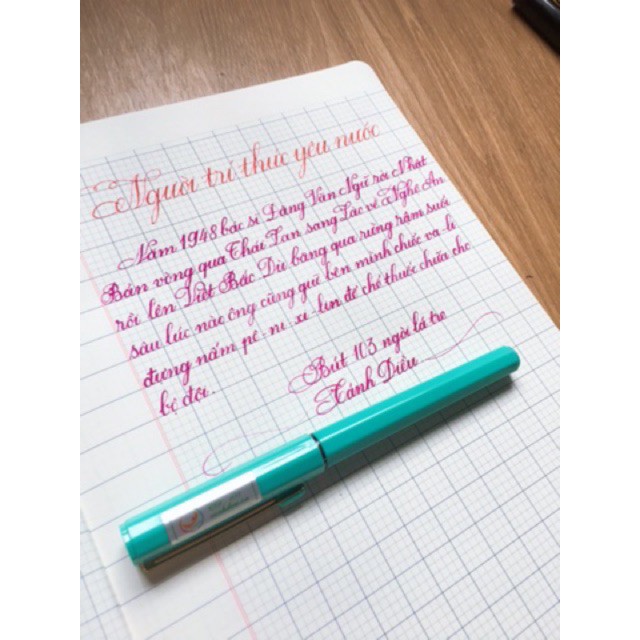 Người trí thức yêu nước
Năm 1948 bác sĩ Đặng Văn Ngữ rời Nhật
Bản vòng qua Thái Lan sang Lào về Nghệ An
rồi lên Việt Bắc Dù băng qua rừng rậm suối
sâu lúc nào ông cũng giữ bên mình chiếc va-li
đựng nấm pê-ni-xi-lin để chế thuốc chữa cho
bộ đội.
Bút 103 ngòi lá tre
Hánh Diều